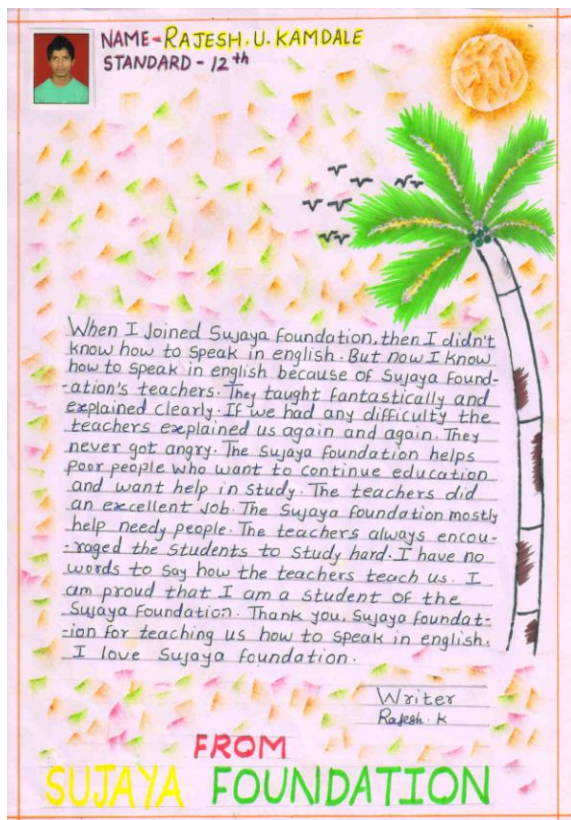 NAME-RAJESH.U.KAMDALE
STANDARD-12th
When I Joined Sujaya foundation, then I didn't
know how to speak in english. But now I know
how to speak in english because of Sujaya Found-
-ation's teachers. They taught fantastically and
explained clearly. If we had any difficulty the
teachers explained us again and again. They
never got angry. The Sujaya foundation helps
poor people who want to continue education
and want help in study. The teachers did
an excellent Job. The Sujaya foundation mostly
help needy people. The teachers always encou-
-raged the students to study hard. I have no
words to say how the teachers teach us. I
am proud that I am a student of the
Sujaya Foundation. Thank you, Sujaya foundat-
-ion for teaching us how to speak in english.
I love Sujaya foundation.
Writer
Rajesh.K
FROM
SUJAYA FOUNDATION